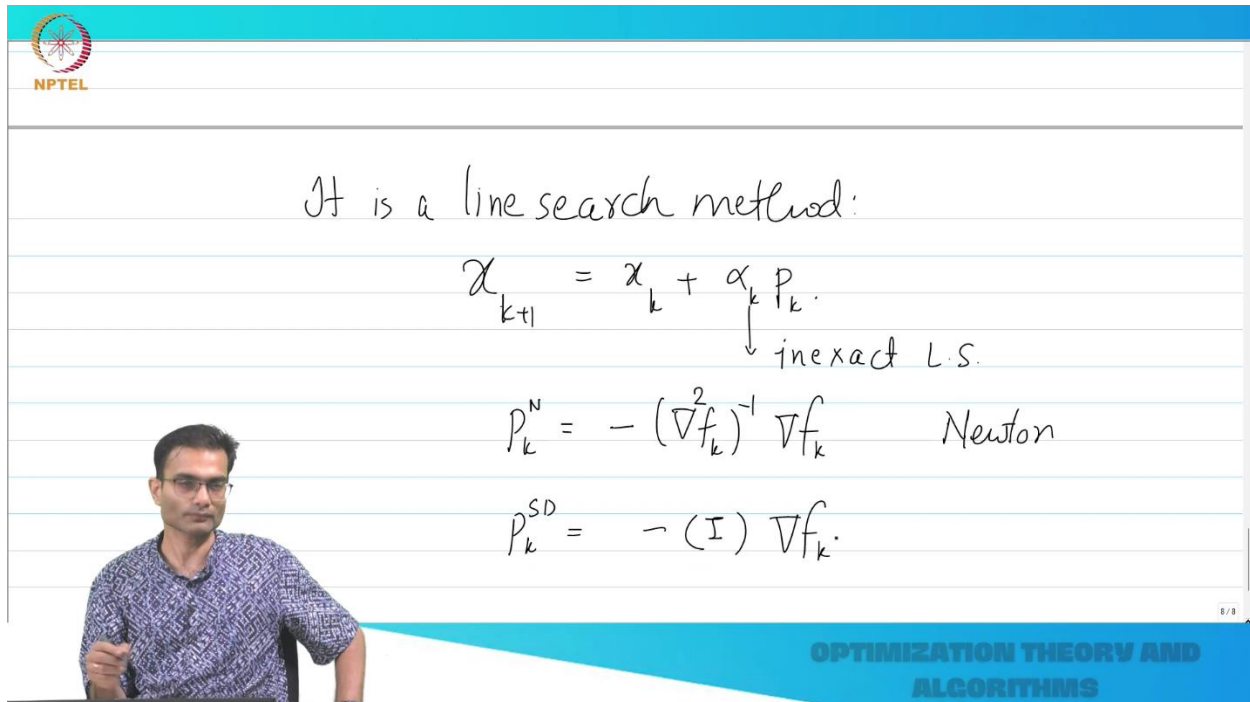 NPTEL
It is a line search method:
x_{k+1} = x_k + α_k p_k.
↓ inexact L.S.
p_k^N = - (∇²f_k)^{-1} ∇f_k Newton
p_k^{SD} = - (I) ∇f_k.
8 / 8
OPTIMIZATION THEORY AND
ALGORITHMS